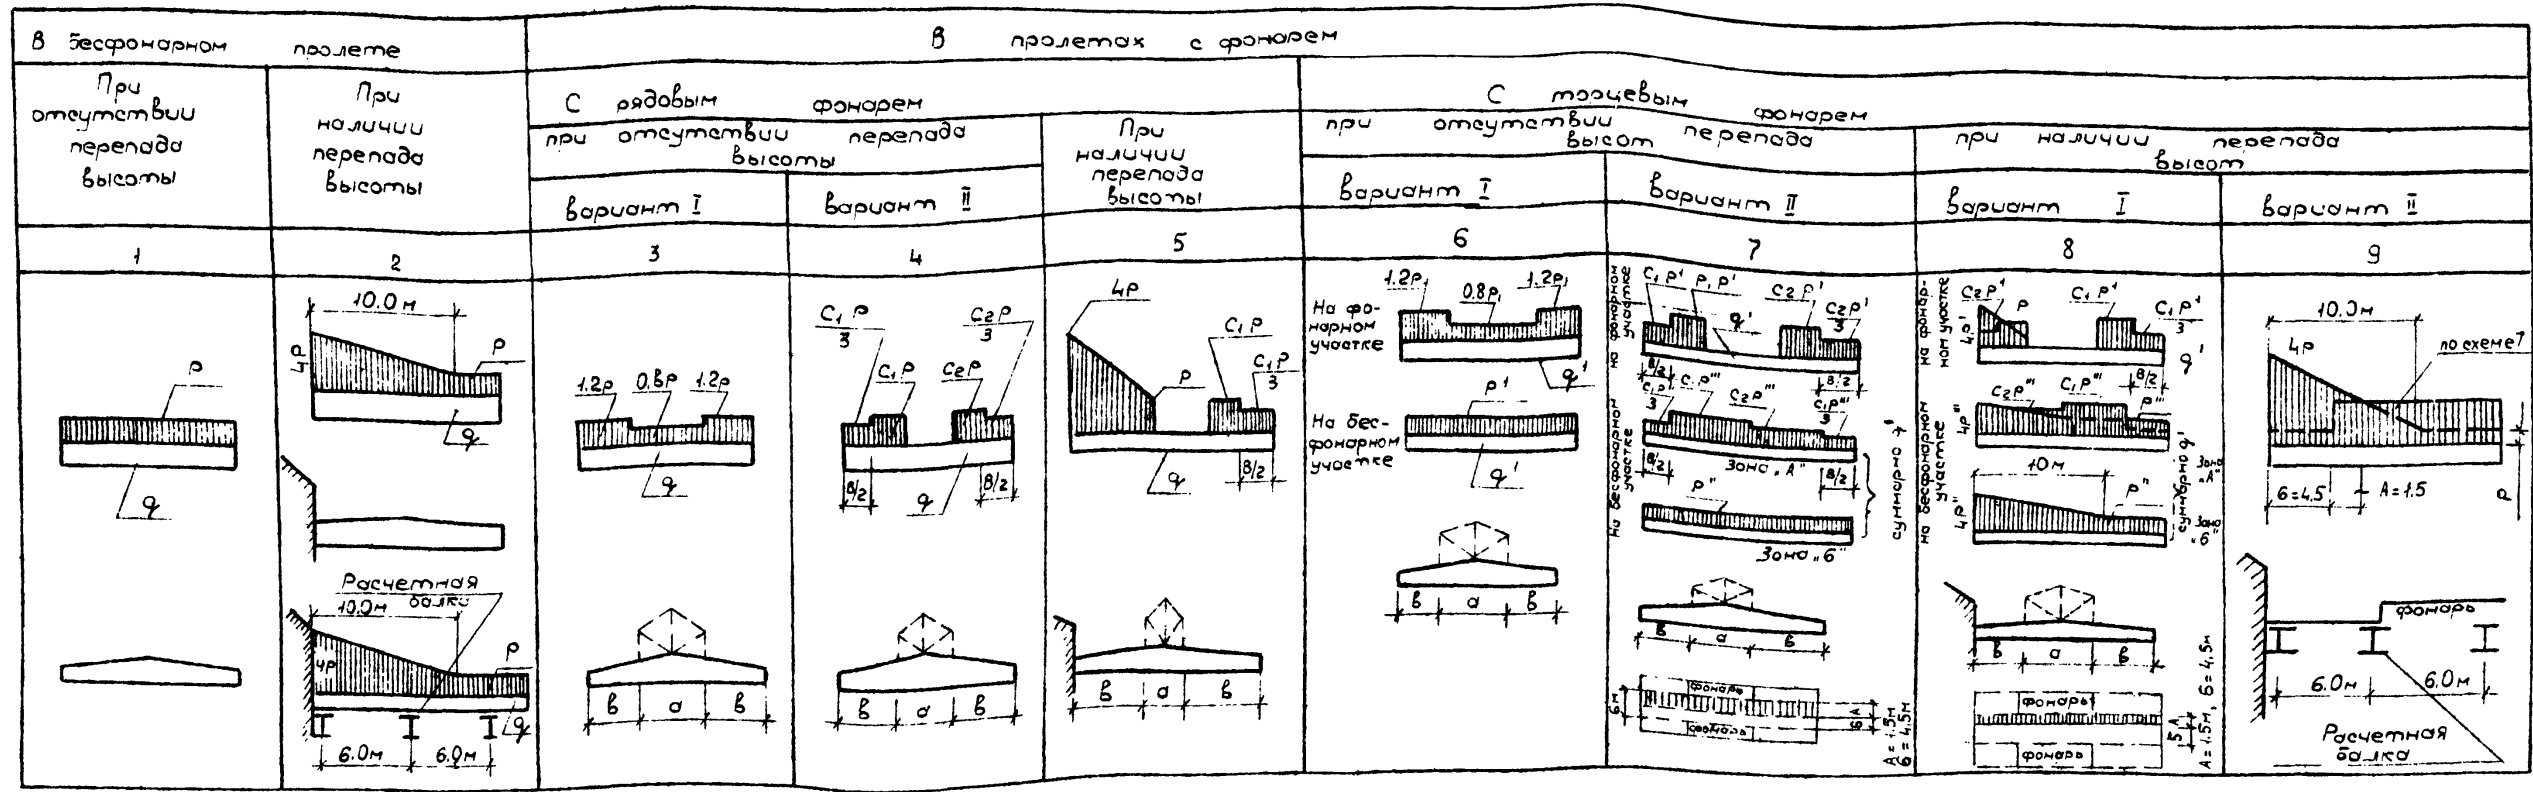 В бесфонарном пролете
В пролетах с фонарем
При
отсутствии
перепада
высоты
При
наличии
перепада
высоты
С рядовым фонарем
при отсутствии перепада
высоты
вариант I
вариант II
При
наличии
перепада
высоты
С торцевым фонарем
при отсутствии перепада
высот
вариант I
вариант II
при наличии перепада
высот
вариант I
вариант II
1
2
3
4
5
6
7
8
9
P
q
10.0 м
4P
P
q
Расчетная
балка
10.0 м
4P
P
q
6.0 м
6.0 м
1.2P
0.8P
1.2P
q
в
а
в
C₁P
3
C₁P
C₂P
C₂P
3
в/2
q
в/2
в
а
в
4P
P
C₁P
C₁P
3
q
в/2
в
а
в
На фо-
нарном
участке
1.2P₁
0.8P₁
1.2P₁
q'
На бес-
фонарном
участке
P'
q'
в
а
в
на фонарном
участке
C₁P'
P₁P'
C₂P'
C₂P'
3
q'
в/2
в/2
на бесфонарном
участке
C₁P'''
C₂P'''
C₁P'''
3
в/2
Зона „А"
в/2
P"
Зона „Б"
суммарно q'
в
а
в
фонарь
фонарь
6м
Б
А
А = 1.5м
Б = 4.5м
на фонар-
ном участке
4P'
C₂P'
P
C₁P'
C₁P'
3
q'
в/2
на бесфонарном
участке
4P'''
C₂P'''
C₁P'''
P'''
10м
4P"
P"
суммарно q'
Зона
„А"
Зона
„Б"
в
а
в
фонарь
фонарь
Б
А
А = 1.5м, Б = 4.5м
10.0м
4P
по схеме 7
Б = 4.5
А = 1.5
P
фонарь
6.0м
6.0м
Расчетная
балка